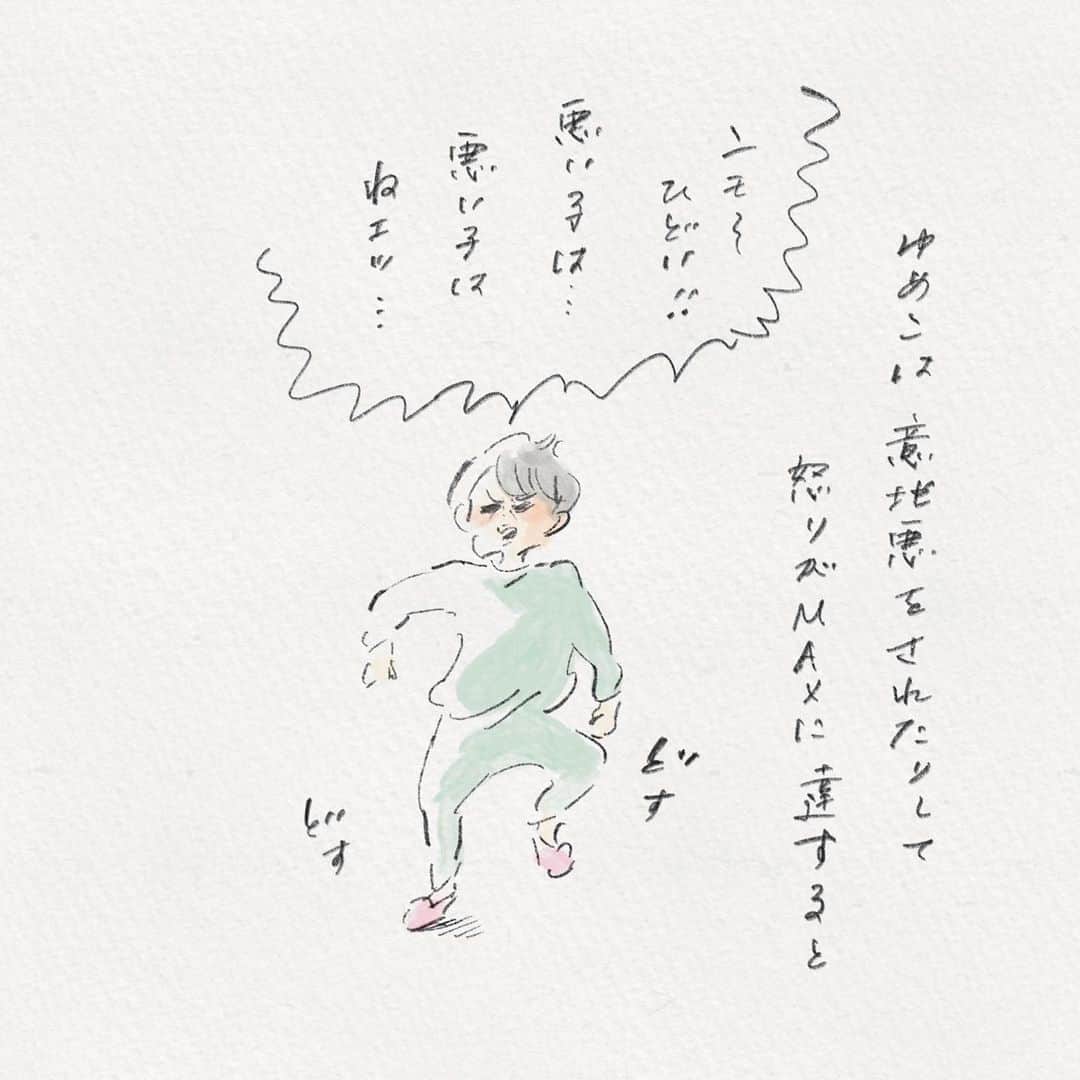 ゆめこは 意地悪をされたりして
怒りがMAXに達すると
ンモ〜
ひどい!!
悪い子は…
悪い子は
ねエッ…
どす
どす